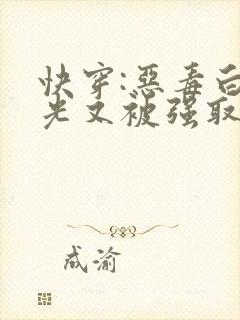 快穿:恶毒白
光又被强取
成渝